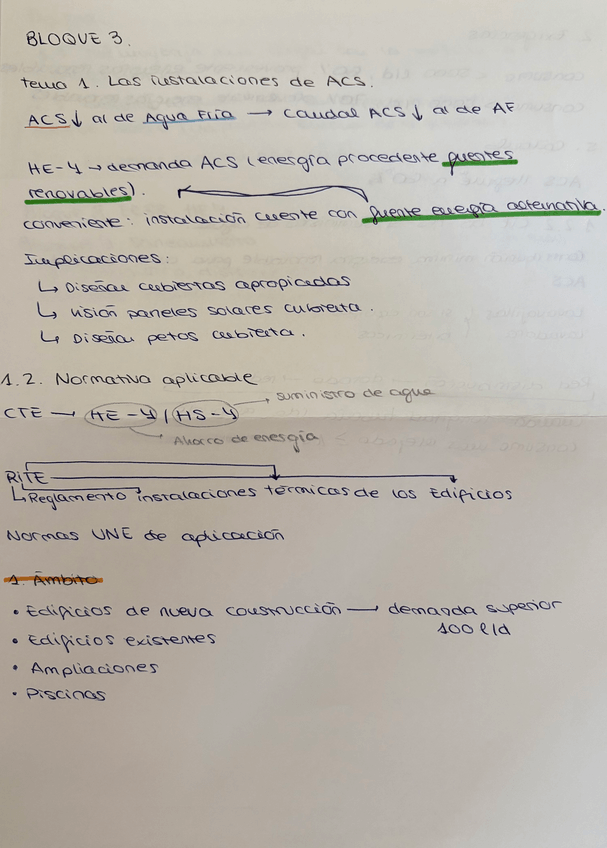 BLOQUE 3.
tema 1. Las instalaciones de ACS.
ACS ↓ al de Agua Fría → caudal ACS ↓ al de AF
HE-4 → demanda ACS (energía procedente fuentes
renovables).
conveniente: instalación cuente con fuente energía alternativa.
Implicaciones:
↳ Diseñar cubiertas apropiadas
↳ visión paneles solares cubierta.
↳ Diseñar petos cubierta.
1.2. Normativa aplicable
suministro de agua
CTE → HE-4 / HS-4
Ahorro de energía
RITE
↳ Reglamento instalaciones térmicas de los Edificios
Normas UNE de aplicación
1. Ámbito
• Edificios de nueva construcción — demanda superior
100 l/d
• Edificios existentes
• Ampliaciones
• Piscinas